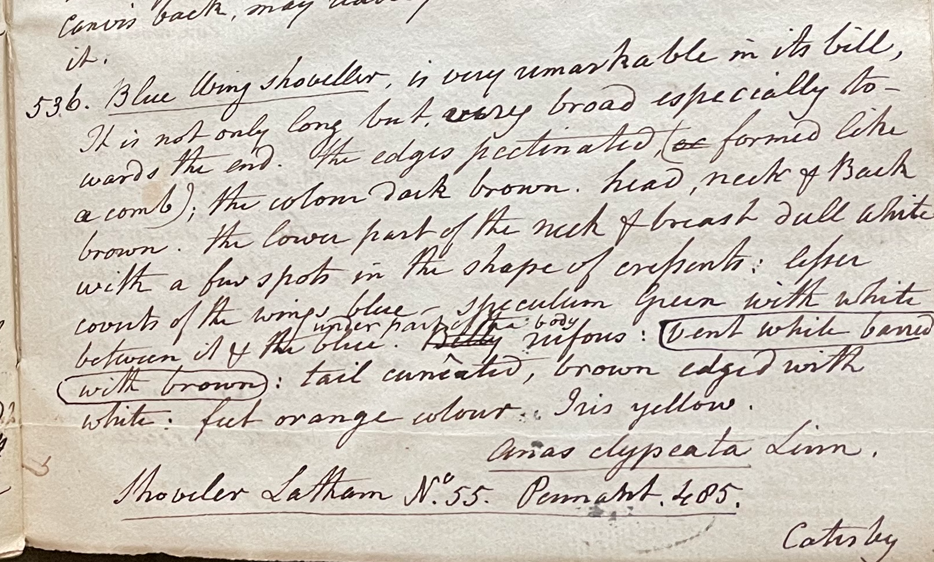 canvis back, may
it.
536. Blue Wing Shoveller, is very remarkable in its bill,
It is not only long but very broad especially to-
wards the end. The edges pectinated, (or formed like
a comb); the colour dark brown. head, neck & Back
brown. the lower part of the neck & breast dull white
with a few spots in the shape of cressents: lesser
coverts of the wings blue – speculum Green with white
between it & the blue. Belly under part of the body rufous: vent white barred
with brown: tail cuneated, brown edged with
white: feet orange colour. Iris yellow.
Anas clypeata Linn.
Shoveler Latham No. 55. Pennant. 485.
Catesby